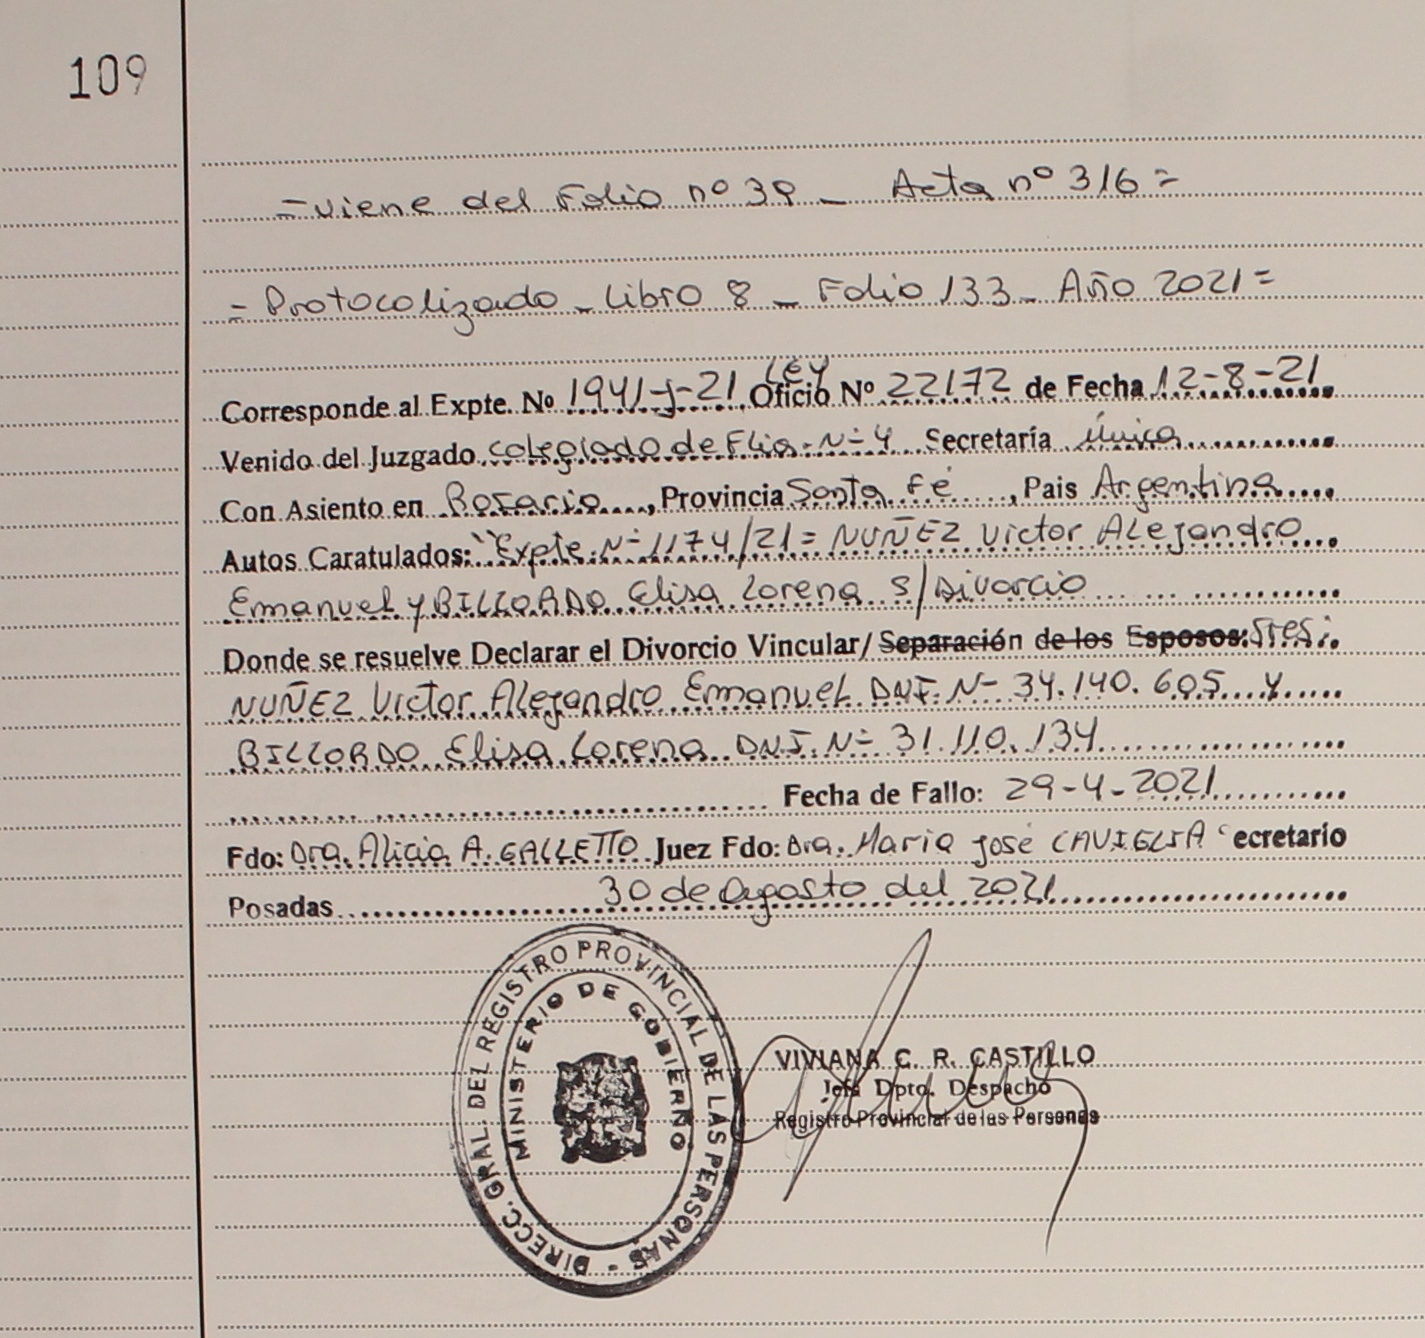 109
=viene del Folio nº 39 _ Acta nº 316=
= Protocolizado _ Libro 8 _ Folio 133 _ Año 2021=
Corresponde al Expte. Nº 1941-J-21 Oficio LEY Nº 22172 de Fecha 12-8-21
Venido del Juzgado colegiado de Flia. Nº 4 Secretaría Única
Con Asiento en Rosario, Provincia Santa Fé, Pais Argentina
Autos Caratulados: "Expte. Nº 1174/21= NUÑEZ Victor Alejandro
Emanuel y BILLORDO Elisa Lorena S/Divorcio
Donde se resuelve Declarar el Divorcio Vincular/ Separación de los Esposos: Sres:
NUÑEZ Victor Alejandro Emanuel DNI. Nº 34.140.605 y
BILLORDO Elisa Lorena DNI. Nº 31.110.134
Fecha de Fallo: 29-4-2021
Fdo: Dra. Alicia A. GALLETTO Juez Fdo: Dra. Maria José CAVIGLIA ecretario
Posadas 30 de agosto del 2021
DIRECC. GRAL. DEL REGISTRO PROVINCIAL DE LAS PERSONAS -
MINISTERIO DE GOBIERNO
VIVIANA C. R. CASTILLO
Jefa Dpto. Despacho
Registro Provincial de las Personas